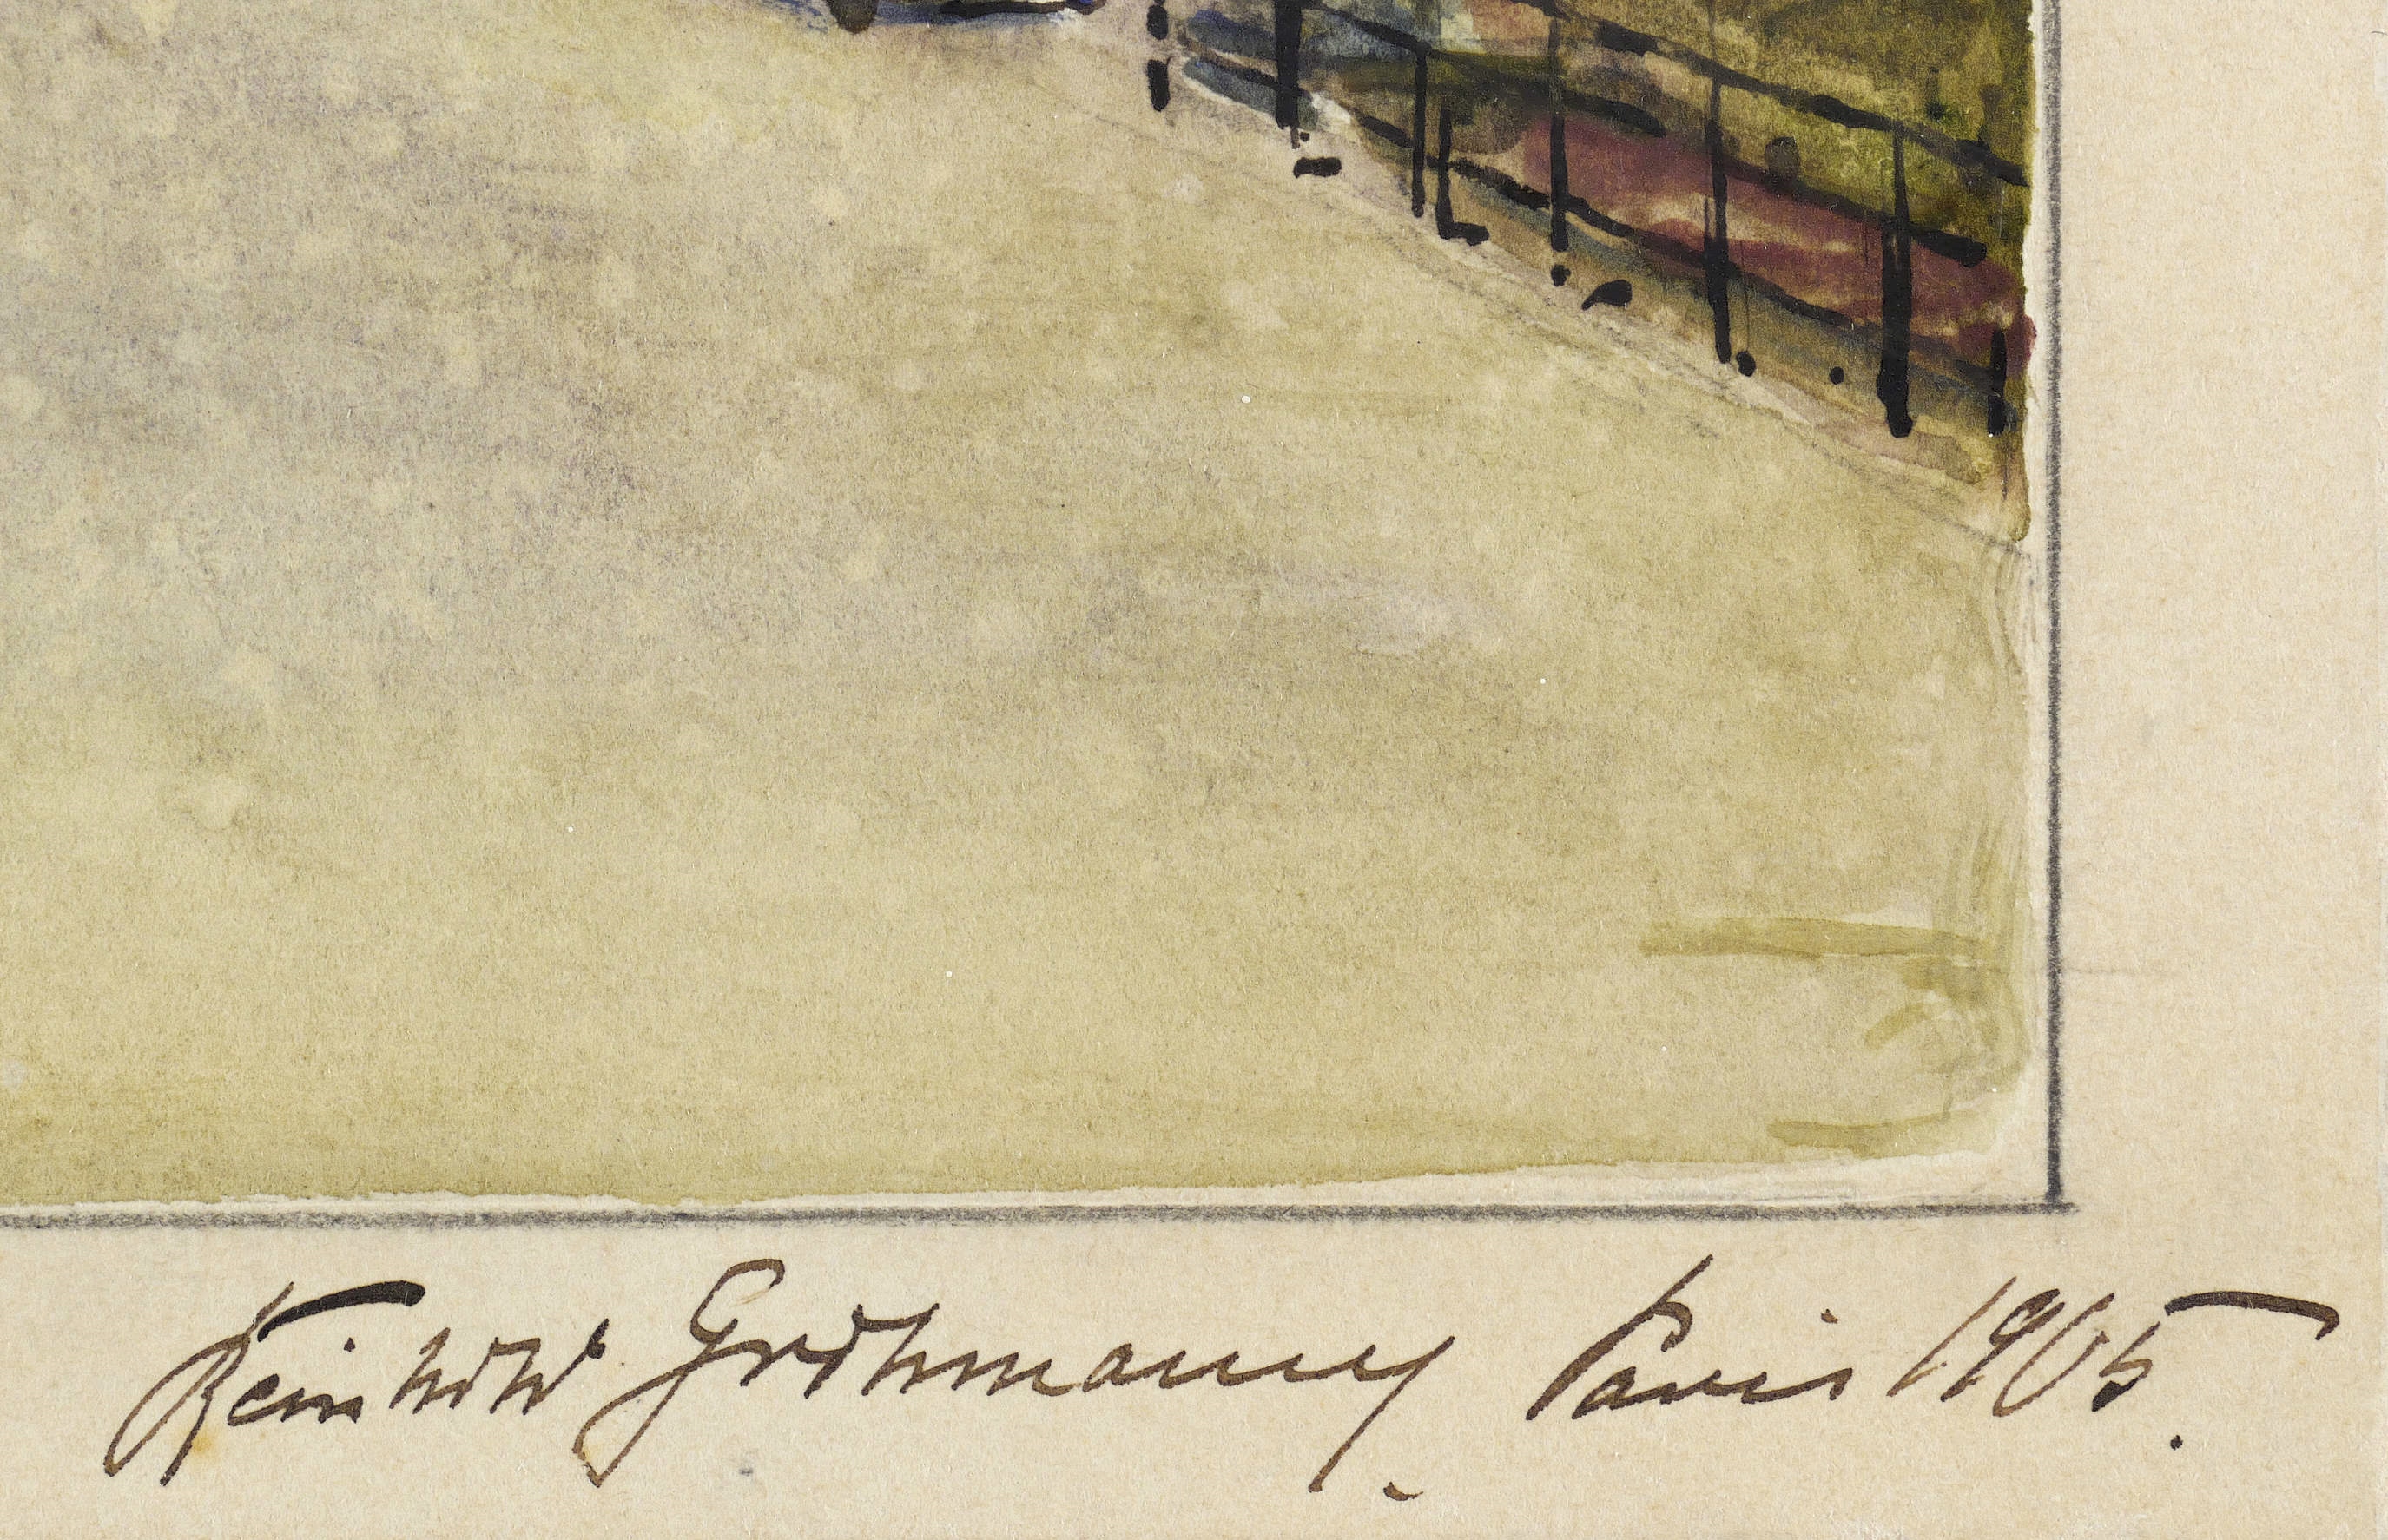 Reinhold Grohmann, Paris 1905.